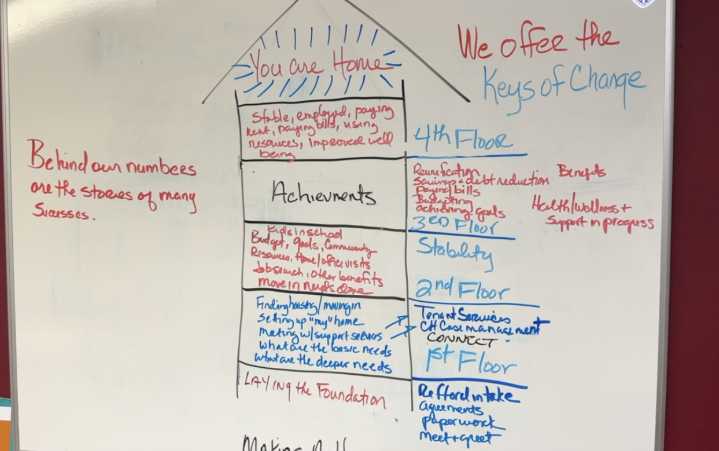 We offer the
Keys of Change
You are Home
Stable, employed, paying
rent, paying bills, using
resources, improved well
being
4th Floor
Behind our numbers
are the stories of many
Sucesses.
Achievments
Reunification
Savings + debt reduction
paying bills
Budgeting
achieving goals
Benefits
Health/wellness +
Support in progress
3rd Floor
Kids in school
Budget, goals, Community
Resources, Home/office visits
Job search, other benefits
move in needs done
Stability
2nd Floor
Finding housing/moving in
Setting up "my" home
Meeting w/support services
what are the basic needs
what are the deeper needs
Tenant Services
CH Case management
CONNECT
1st Floor
LAYING the Foundation
Refford intake
agreements
paperwork
meet + greet
Making